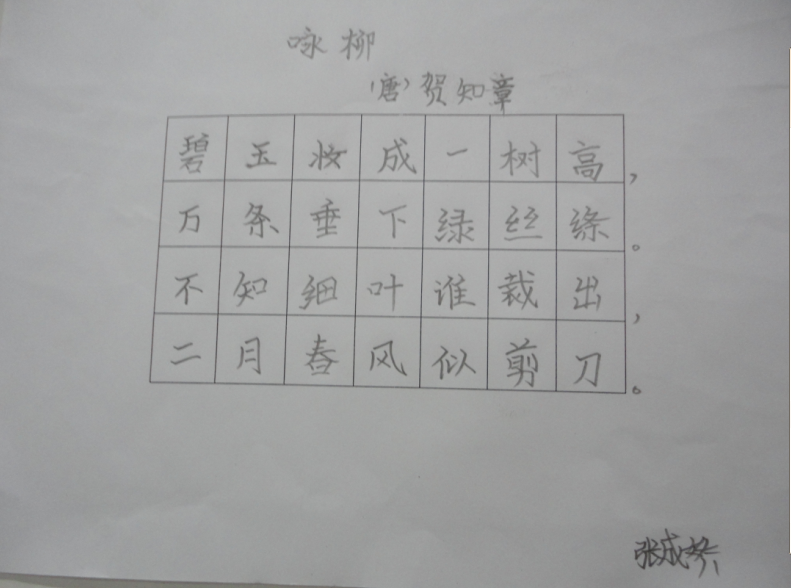 咏柳
(唐)贺知章
碧玉妆成一树高,
万条垂下绿丝绦。
不知细叶谁裁出,
二月春风似剪刀。
张成